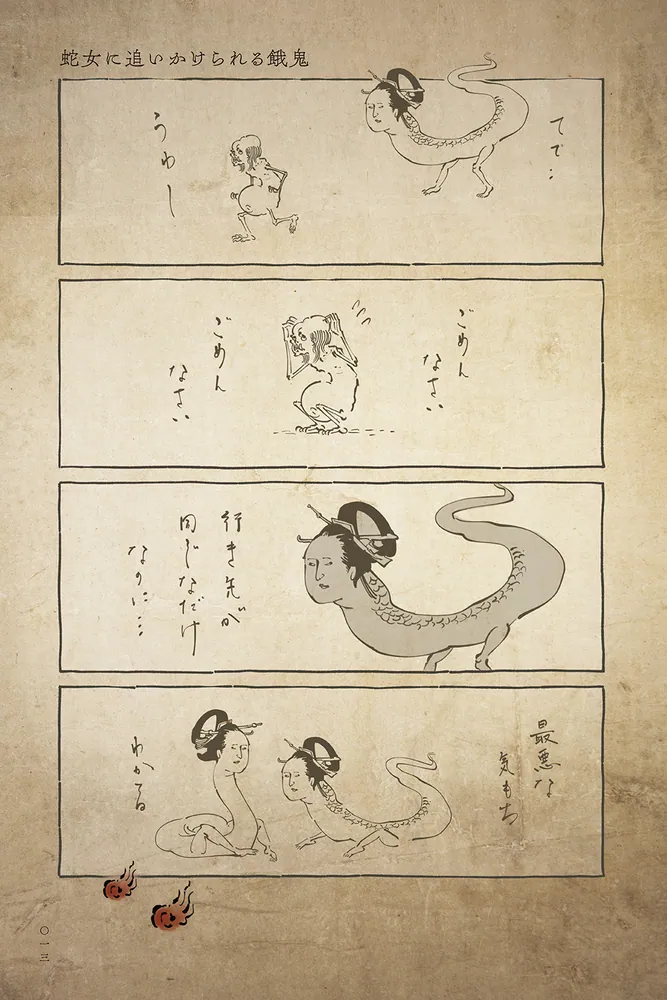 蛇女に追いかけられる餓鬼
うわー
ごめん
なさい
ごめん
なさい
行き先が
同じなだけ
なのに…
最悪な
気もち
わかる
〇一三